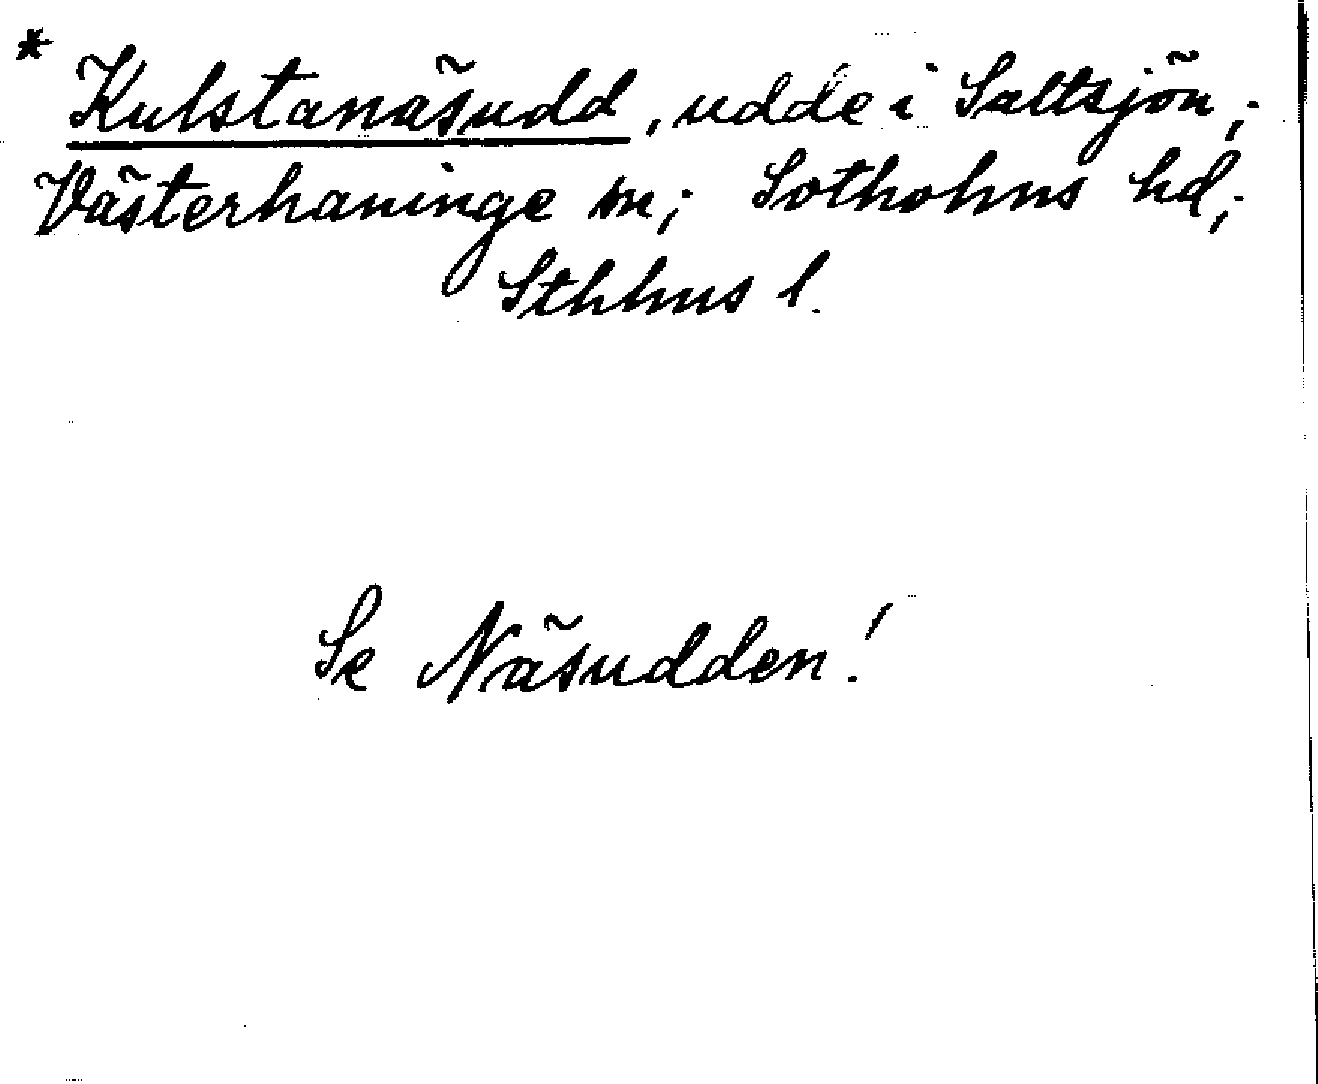 * Kulstanäsudd, udde i Saltsjön;
Västerhaninge sn; Sotholms hd;
Sthlms l.
Se Näsudden!